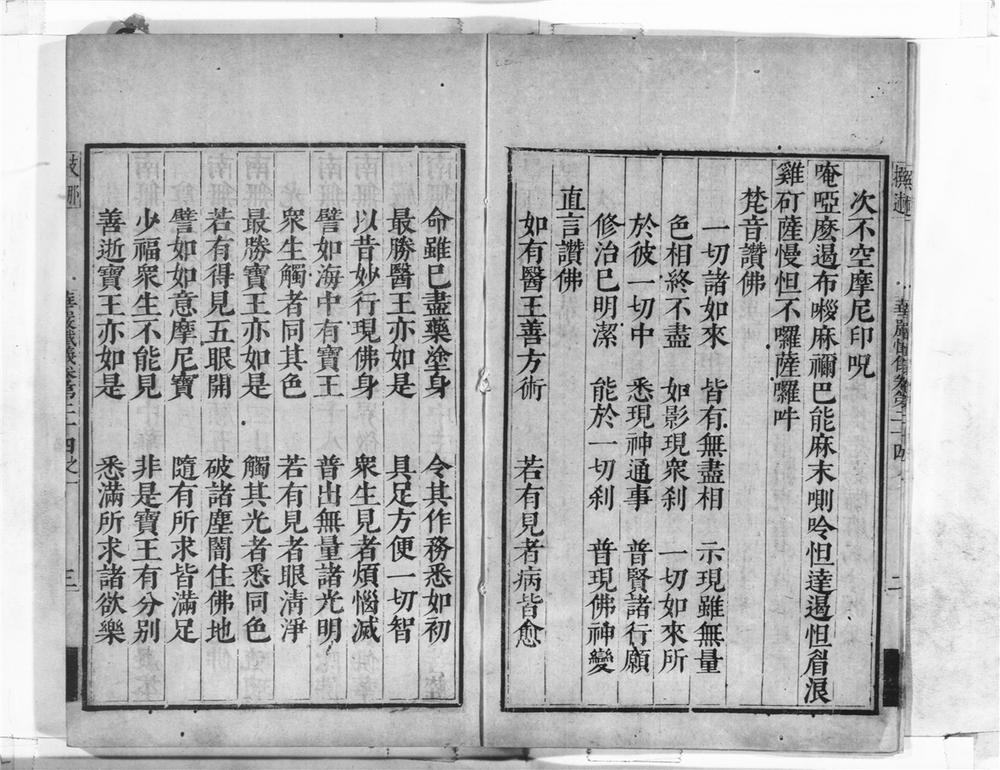 次不空摩尼印呪
唵啞麽遏布㘑麻禰巴能麻末唎唥怛達遏怛眉浪
雞矴薩幔怛不囉薩囉吽
梵音讚佛
一切諸如來　皆有無盡相　示現雖無量
色相終不盡　如影現衆刹　一切如來所
於彼一切中　悉現神通事　普賢諸行願
修治已明潔　能於一切刹　普現佛神變
直言讚佛
如有醫王善方術　若有見者病皆愈
二
命雖已盡藥塗身　令其作務悉如初
最勝醫王亦如是　具足方便一切智
以昔妙行現佛身　衆生見者煩惱滅
譬如海中有寶王　普出無量諸光明
衆生觸者同其色　若有見者眼清淨
最勝寶王亦如是　觸其光者悉同色
若有得見五眼開　破諸塵闇住佛地
譬如如意摩尼寶　隨有所求皆滿足
少福衆生不能見　非是寶王有分別
善逝寶王亦如是　悉滿所求諸欲樂
三